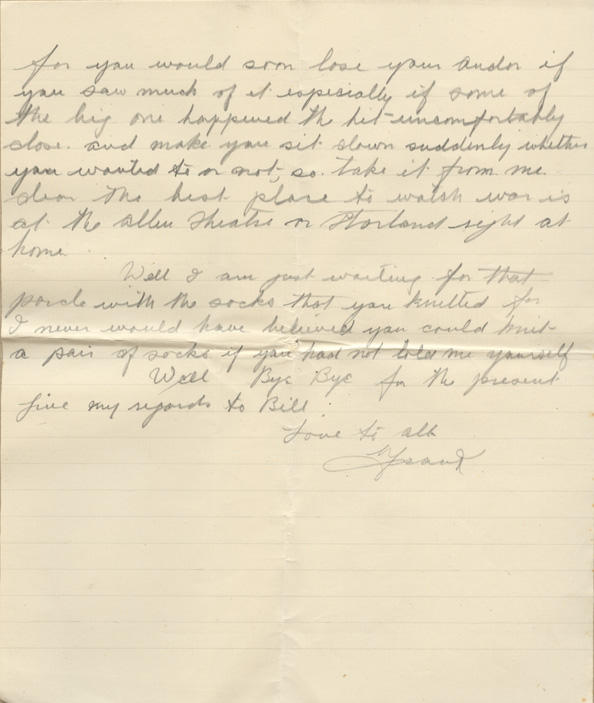 for you would soon lose your andor if
you saw much of it especially if some of
the big one happened to hit uncomfortably
close. and make you sit down suddenly whether
you wanted to or not, so. take it from me
dear the best place to watch war is
at the Allen Theatre or Starland right at
home.
Well I am just waiting for that
parcle with the socks that you knitted for
I never would have believed you could knit
a pair of socks if you had not told me yourself
Well Bye Bye for the present
Give my regards to Bill.
Love to all
Frank